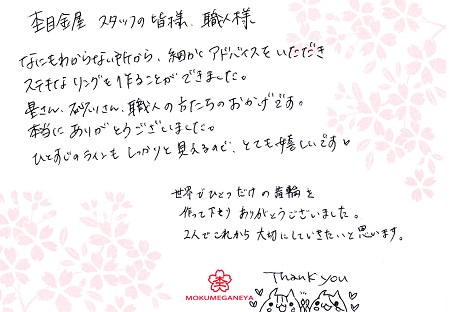 杢目金屋 スタッフの皆様、職人様
なにもわからない所から、細かくアドバイスをいただき
ステキなリングを作ることができました。
星さん、砂川さん、職人の方たちのおかげです。
本当にありがとうございました。
ひとすじのラインもしっかりと見えるので、とても嬉しいです♥
世界でひとつだけの指輪を
作って下さり ありがとうございました。
2人でこれから大切にしていきたいと思います。
Thank you
MOKUMEGANEYA